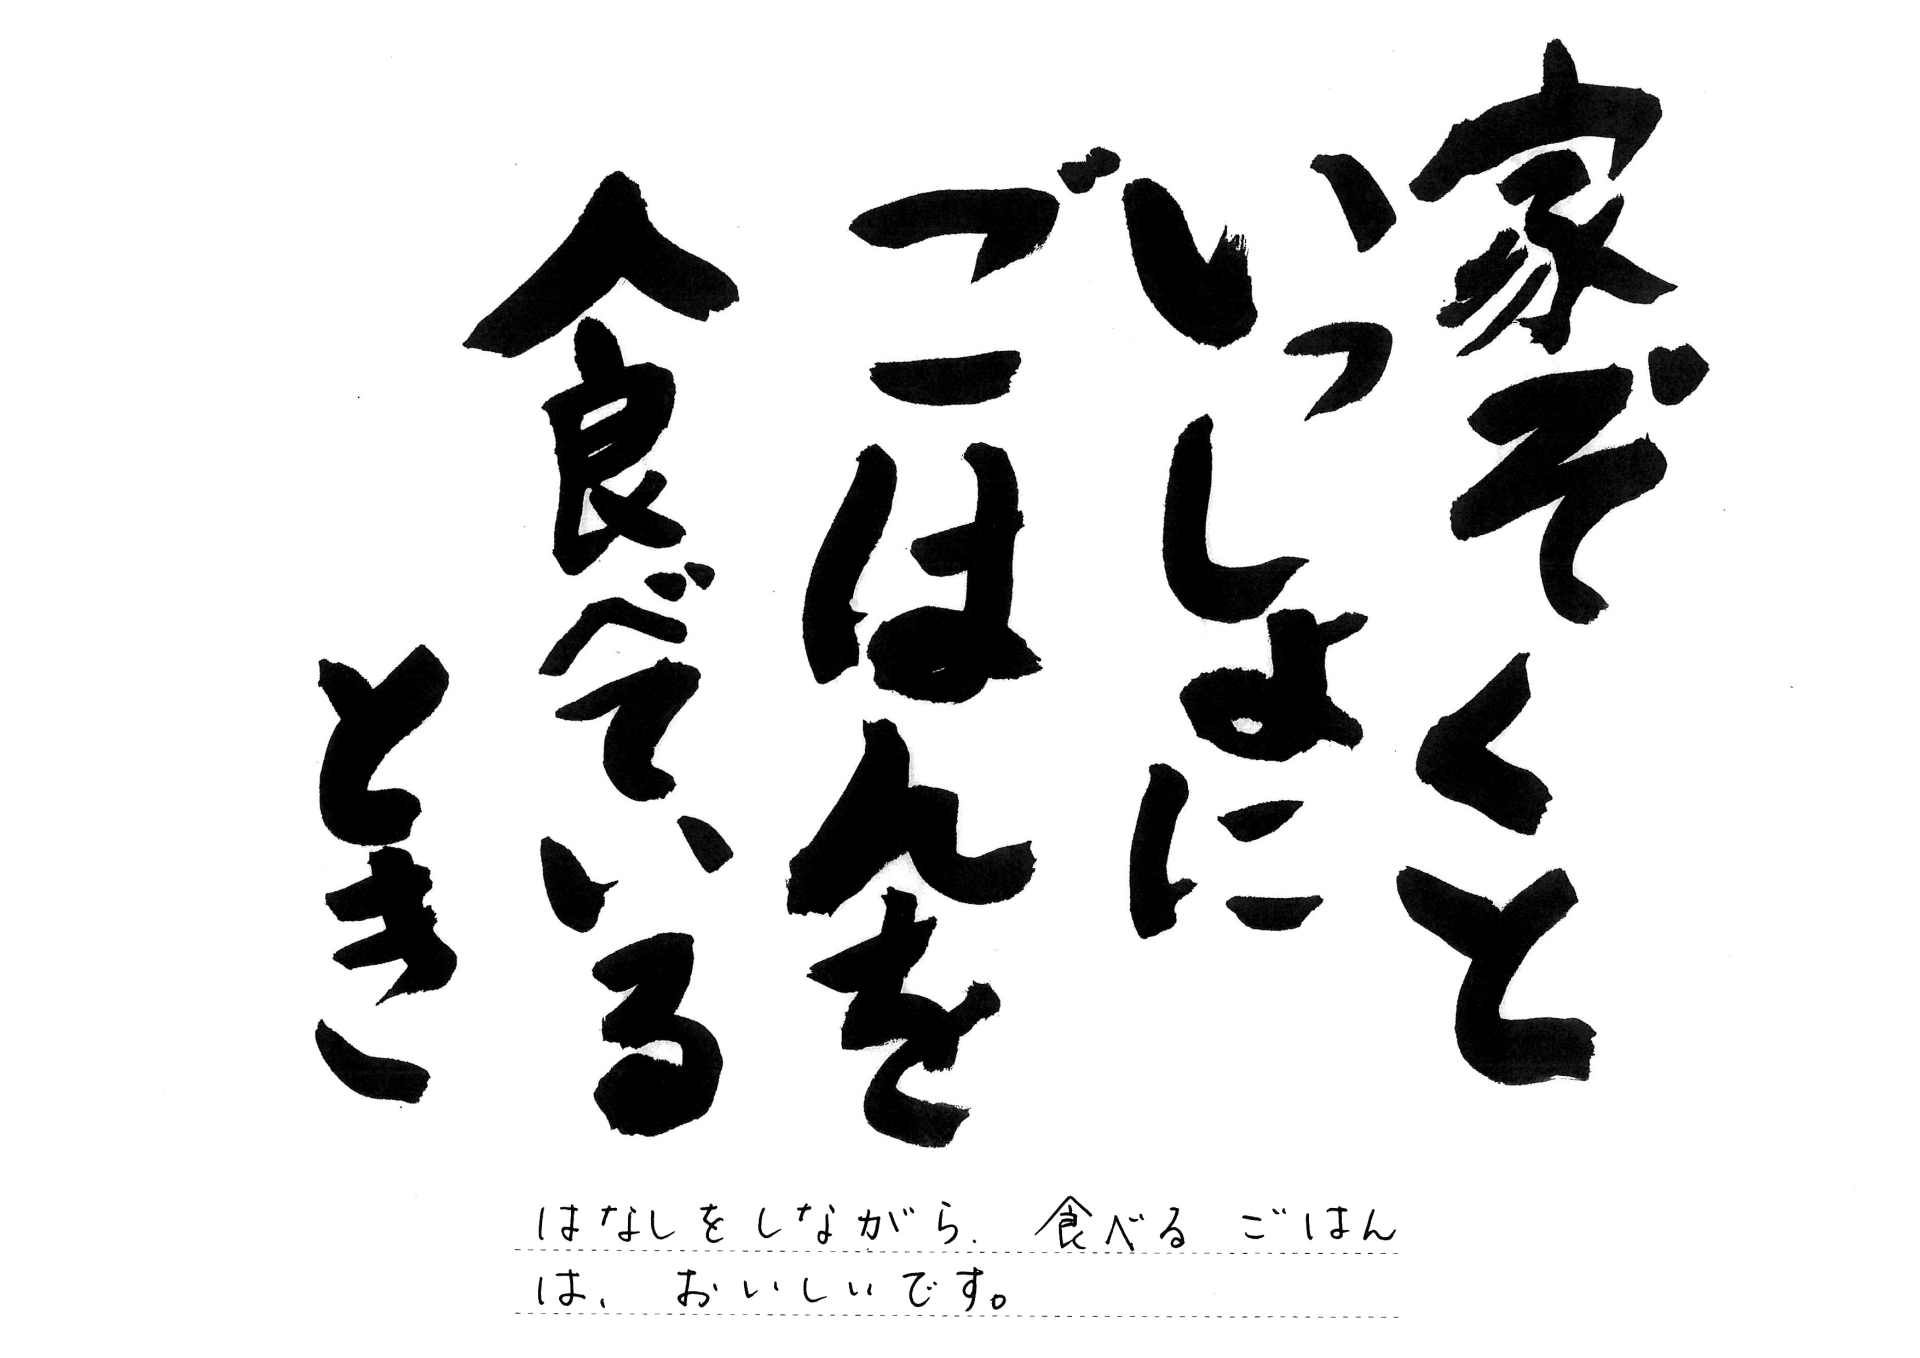 家ぞくと
いっしょに
ごはんを
食べている
とき
はなしをしながら、食べる ごはん
は、おいしいです。